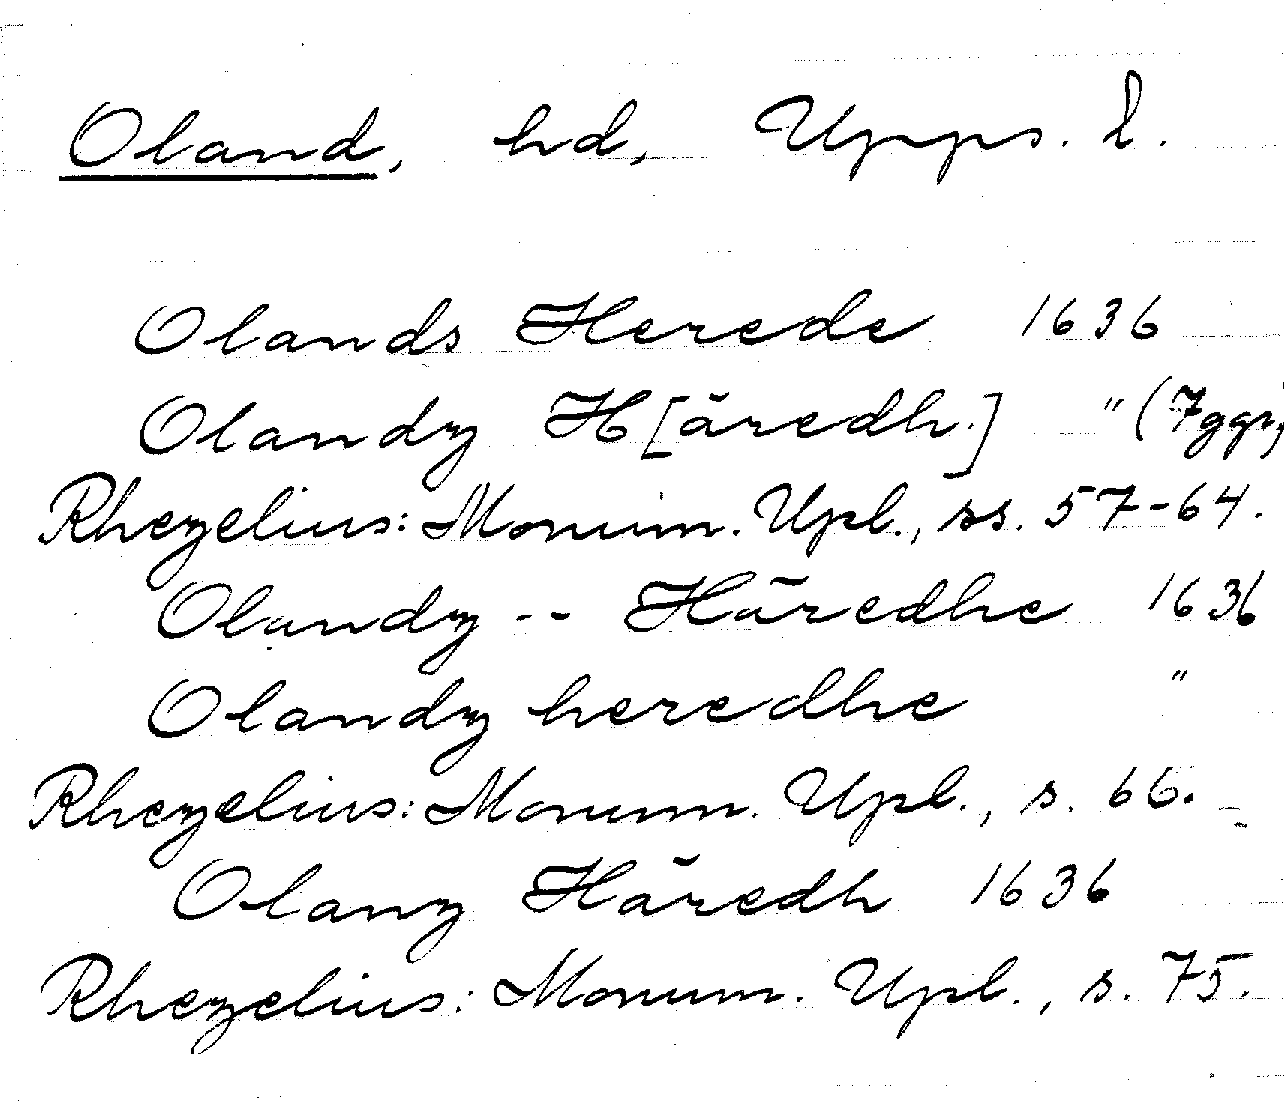 Oland, hd, Upps. l.
Olands Herede 1636
Olandz H[äredh.] " (7ggr)
Rhezelius: Monum. Upl., ss. 57-64.
Olandz -- Häredhe 1636
Olandz heredhe "
Rhezelius: Monum. Upl., s. 66.
Olanz Häredh 1636
Rhezelius: Monum. Upl., s. 75.